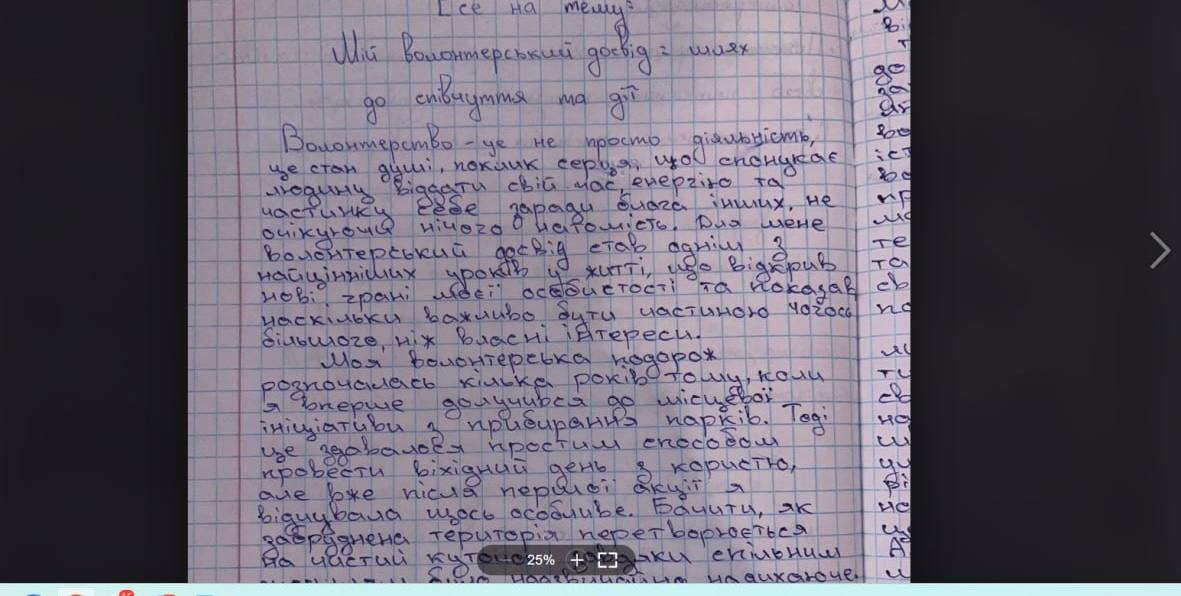 Есе на тему:
Мій волонтерський досвід: шлях
до співчуття та дії
Волонтерство - це не просто діяльність,
це стан душі, поклик серця, що спонукає
людину віддати свій час, енергію та
частинку себе заради блага інших, не
очікуючи нічого натомість. Для мене
волонтерський досвід став одніш з
найцінніших уроків у житті, що відкрив
нові грані моєї особистості та показав
наскільки важливо бути частиною чогось
більшого, ніж власні інтереси.
Моя волонтерська подорож
розпочалась кілька років тому, коли
я вперше долучився до місцевої
ініціативи з прибирання парків. Тоді
це здавалося простим способом
провести віхідний день з користю,
але вже після першої акції я
відчувала щось особливе. Бачити, як
забруднена територія перетворюється
на чистий завдяки спільним
надихаюче.
25%